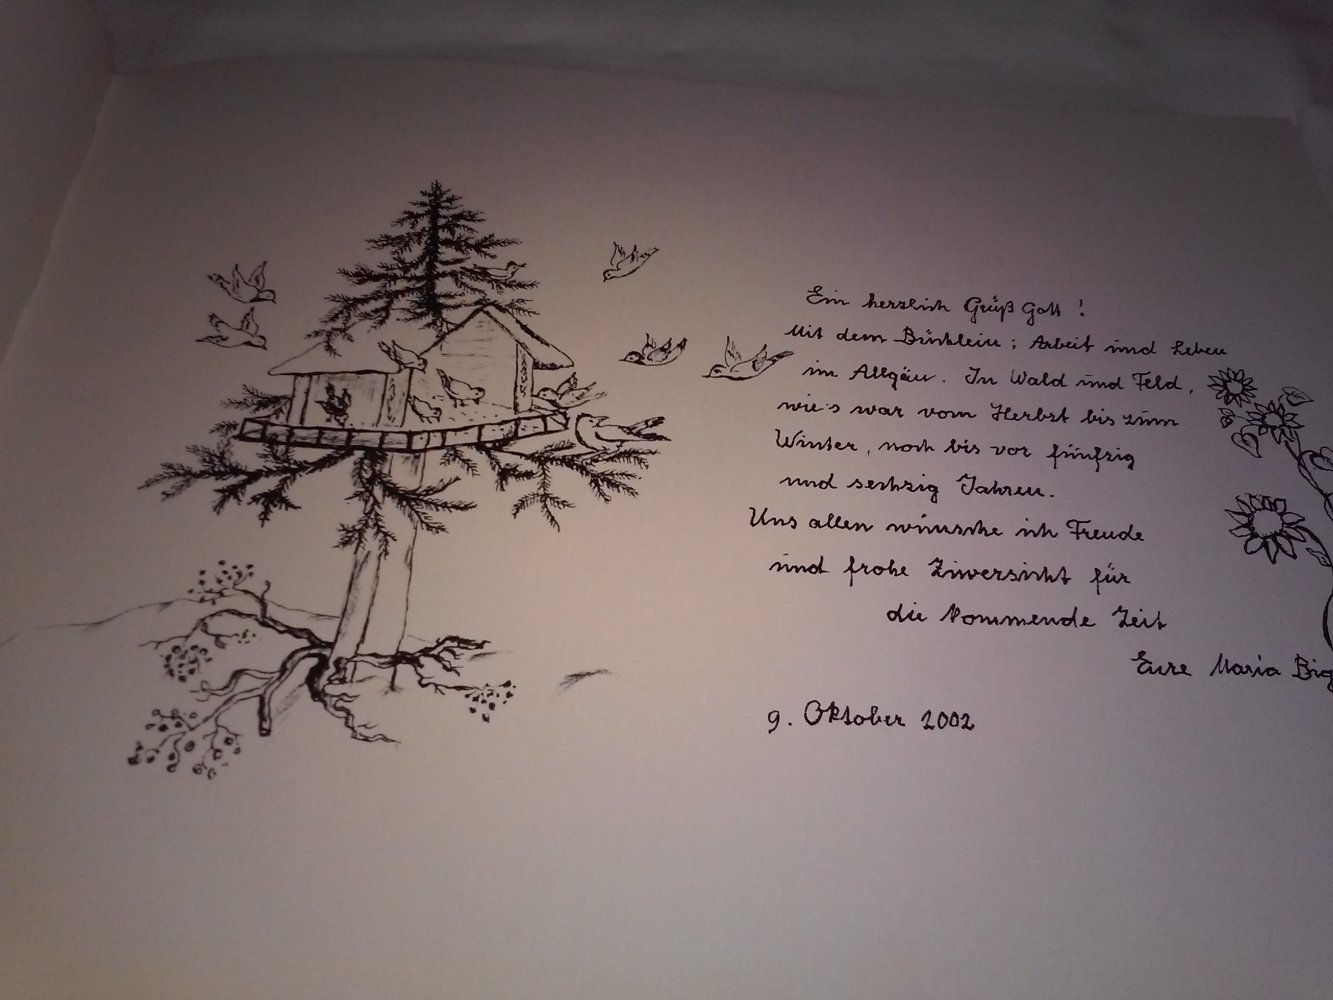 Ein herzlich Grüß Gott!
Mit dem Büchlein: Arbeit und Leben
im Allgäu. In Wald und Feld,
wie's war vom Herbst bis zum
Winter, noch bis vor fünfzig
und sechzig Jahren.
Uns allen wünsche ich Freude
und frohe Zuversicht für
die kommende Zeit
Eure Maria
9. Oktober 2002